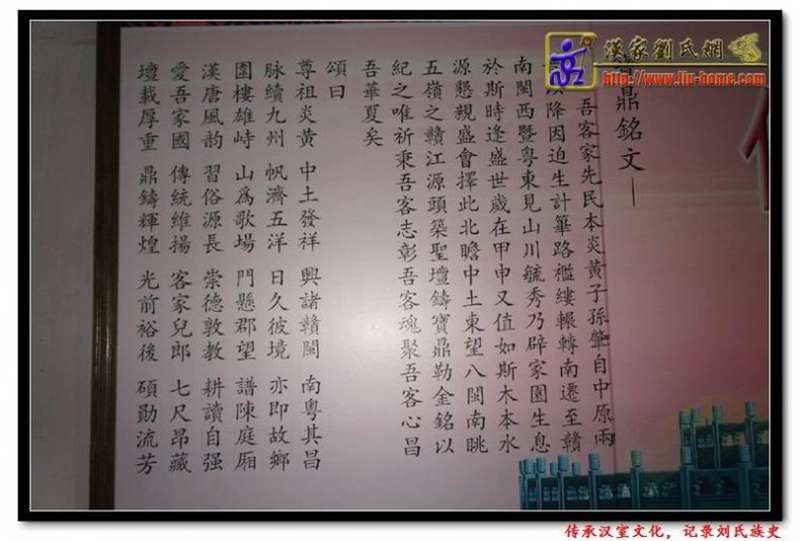 漢家劉氏網
http://www.liu-home.com
鼎銘文
吾客家先民本炎黃子孫肇自中原兩
以降因迫生計篳路襤縷輾轉南遷至贛
南閩西暨粵東見山川毓秀乃辟家園生息
於斯時逢盛世歲在甲申又值如斯木本水
源懇親盛會擇此北瞻中土東望八閩南眺
五嶺之贛江源頭築聖壇鑄寶鼎勒金銘以
紀之唯祈秉吾客志彰吾客魂聚吾客心昌
吾華夏矣
頌曰
尊祖炎黃 中土發祥 興諸贛閩 南粵其昌
脉續九州 帆濟五洋 日久彼境 亦即故鄉
圍樓雄峙 山爲歌場 門懸郡望 譜陳庭厢
漢唐風韵 習俗源長 崇德敦教 耕讀自强
愛吾家國 傳統維揚 客家兒郎 七尺昂藏
壇載厚重 鼎鑄輝煌 光前裕後 碩勛流芳
传承汉室文化，记录刘氏族史